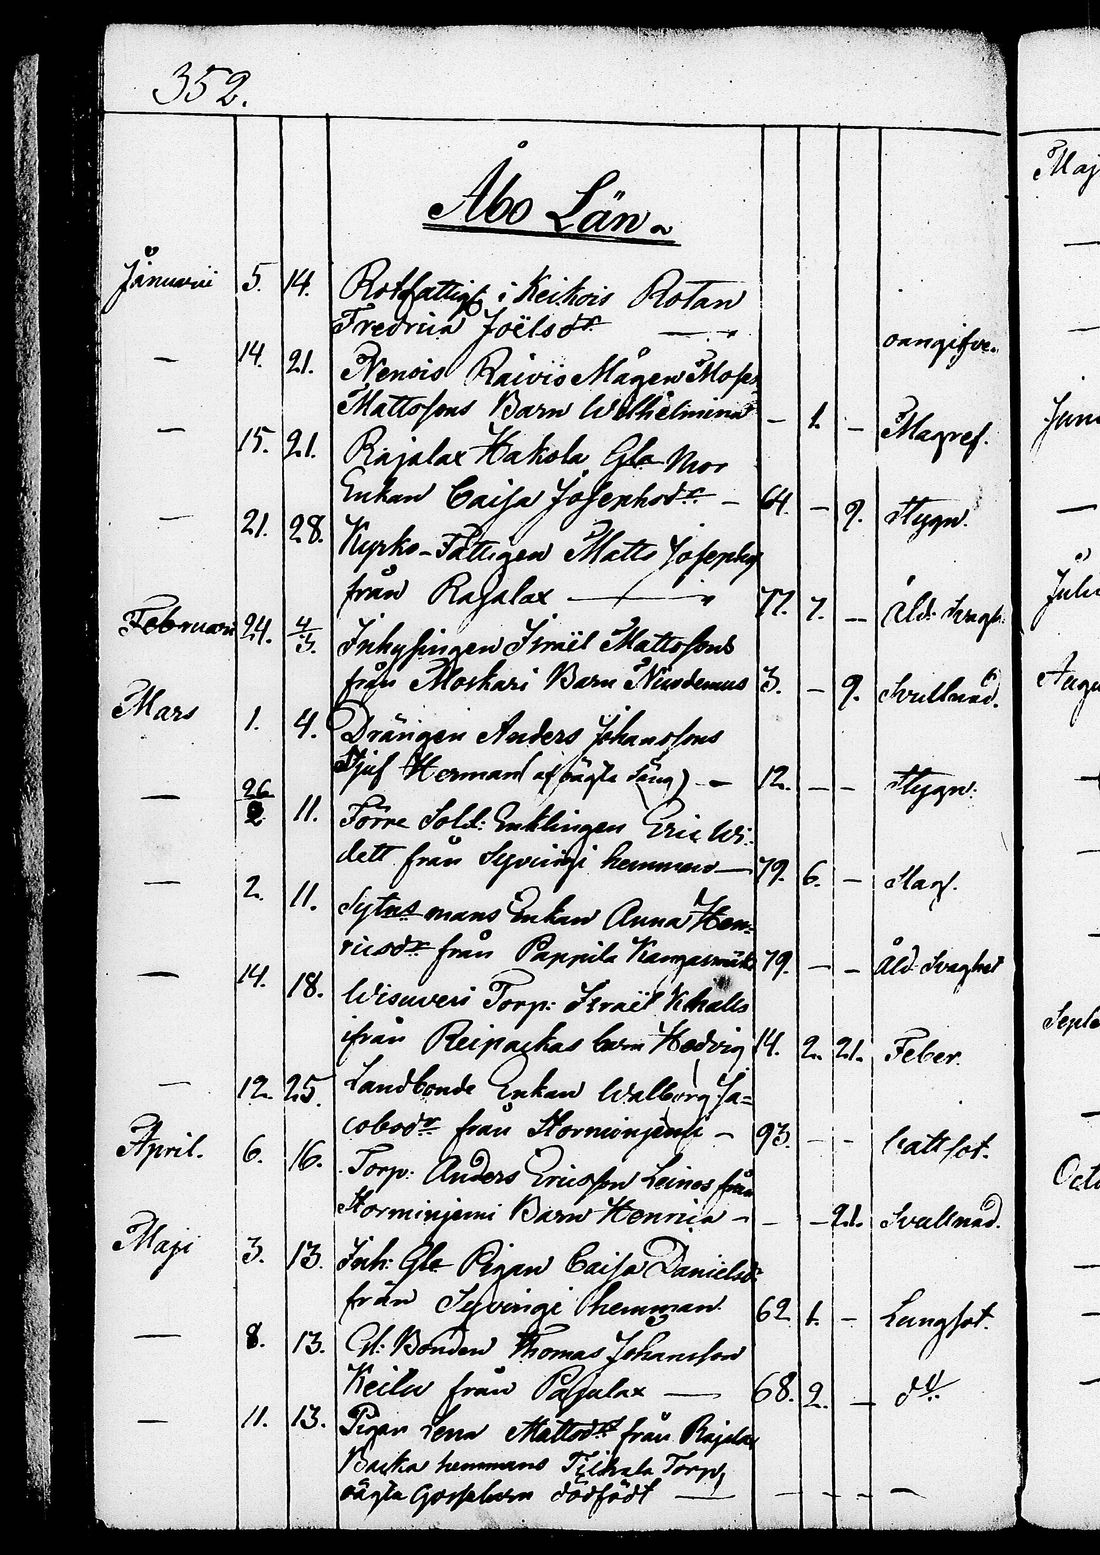 352.
Åbo Län.
Januarii 5. 14. Rotfattige i Keikois Rotan
Fredrica Joëlsdr — oangifve.
— 14. 21. Nenois Raivis Mågen Moses
Mattssons Barn Wilhelmina — 1. — Magref.
— 15. 21. Rajalax Hakola Gla Mor
Enkan Caisa Josephsdr — 64. — 9. Stygn.
— 21. 28. Kyrko-Fattigen Matts Josephs
från Rajalax — 77. 7. — Åld: Svagh:
Februari 24. 4/3. Inhysingen Israël Mattssons
från Moskari Barn Nicodemus 3. — 9. Svullnad.
Mars 1. 4. Drängen Anders Johanssons
Tjuf Herman (af oägta säng) — 12. — — Stygn:
— 26/2 11. Förre Sold: Enklingen Eric Wi-
dell från Syvängi hemman — 79. 6. — Slag.
— 2. 11. Sytnings mans Enkan Anna Hen-
ricsdr från Pappila 79. — — Åld: Svaghet
— 14. 18. Torp: Israël
ifrån Reipackas barn Hedvig 14. 2. 21. Feber.
— 12. 25. Landbonde Enkan Walborg Ja-
cobsdr från Storminjemi — 93. — — Kallsot.
April. 6. 16. Torp: Anders Ericsson Leinos från
Storminjemi Barn Henrica — — — 21. Svullnad.
Maji 3. 13. Inh: Gla Pigan Caisa Danielsd:
från Syvängi hemman. 62 1. — Lungsot.
— 8. 13. Gl: Bonden Thomas Johansson
Keila från Pajalax — 68. 2. — do
— 11. 13. Pigan Lena Mattsdr från Rajalax
Backa hemmans Torp,
oägta Gossebarn dödfödt — — — — —
Maj
—
—
Juni
—
Julii
Augu
—
—
—
Septe
—
Octo
—
—
—